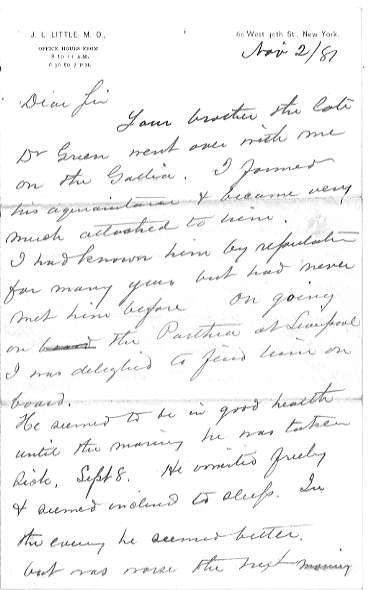 J. L. LITTLE. M. D.,
OFFICE HOURS FROM
8 TO 11 A.M.
6 30 TO 7 P.M.
60 West 40th St., New York.
Nov 2/81
Dear Sir
Your brother the late
Dr Green went over with me
on the Gallia. I formed
his aquaintance & became very
much attached to him.
I had known him by reputation
for many years but had never
met him before On going
on board the Parthia at Liverpool
I was delighted to find him on
board.
He seemed to be in good health
until the morning he was taken
sick, Sept 8. He vomited freely
& seemed inclined to sleep. In
the evening he seemed better.
but was worse the next morning